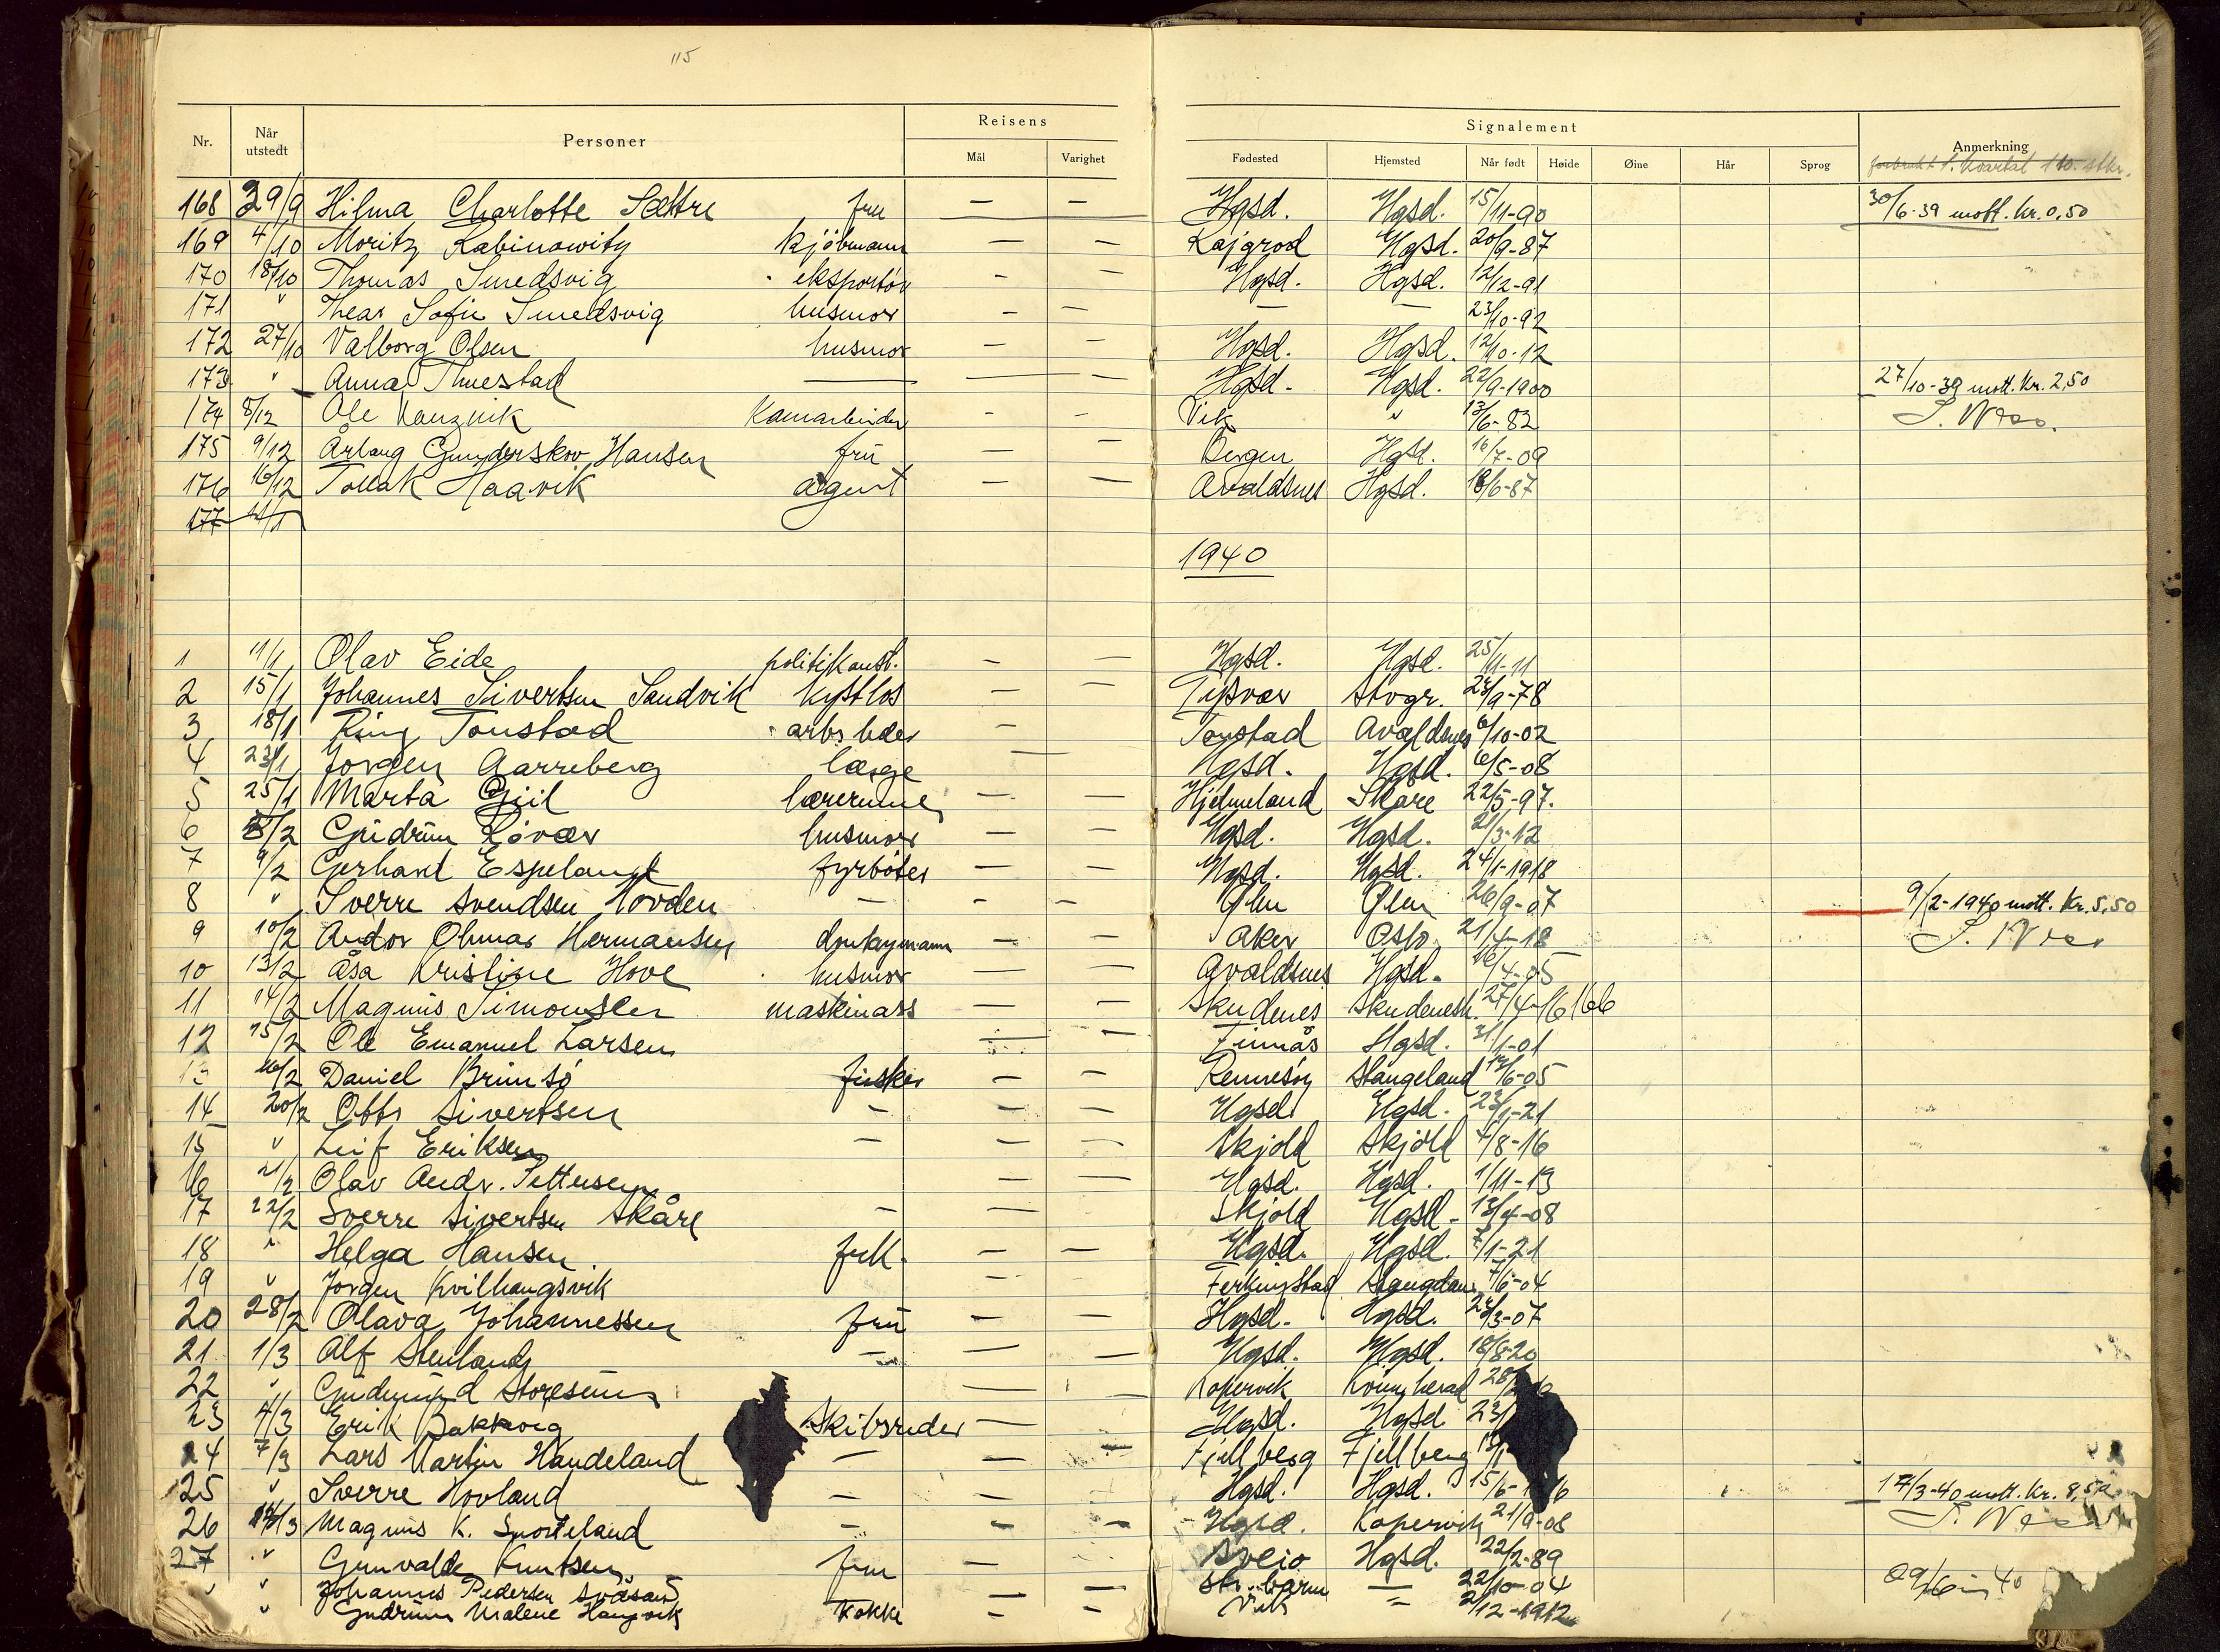 115
Nr. Når utstedt Personer Reisens Mål Varighet Signalement Fødested Hjemsted Når født Høide Øine Hår Sprog Anmerkning
168 29/9 Hilma Charlotte Sættre fru — — Hgsd. Hgsd. 15/11-90 30/6-39 mott. kr. 0,50
169 4/10 Moritz Rabinowitz kjöbmann — — Rajgrod Hgsd. 20/9-87
170 18/10 Thomas Smedsvig eksportör - — Hgsd. Hgsd. 12/12-91
171 " Thea Sofie Smedsvig husmor - — — — 23/10-92
172 27/10 Valborg Olsen husmor — — Hgsd. Hgsd. 12/10-12
173 " Anna Thuestad — — — Hgsd. Hgsd. 22/9-1900 27/10-39 mott. kr. 2,50
174 8/12 Ole - - Vik " 13/6-82
175 9/12 Aslaug Hansen frü — — Bergen Hgsd. 16/7-09
176 16/12 Tollak Haavik agent — — Avaldsnes Hgsd. 18/6-87
177 11/1
1940
1 11/1 Olav Eide politikonst. — — Hgsd. Hgsd. 25/11-11
2 15/1 Johannes Sivertsen Sandvik kystlos — — Tysvær Stvgr. 24/9-78
3 18/1 Ring Tonstad arb.leder — — Tonstad Avaldsnes 6/10-02
4 23/1 Jorgen Aarreberg læge — — Hgsd. Hgsd. 6/5-08
5 25/1 Marta Gjil lærerinne — — Hjelmeland Skåre 22/5-97.
6 8/2 Güdrün Rövær husmor — — Hgsd. Hgsd. 21/3-12
7 9/2 Gerhard Espeland fyrböter — — Hgsd. Hgsd. 24/1-1918
8 " Sverre Svendsen Hovden — - — Ølen Ølen 26/9-07 9/2-1940 mott. kr. 5,50
9 10/2 Andor Olmar Hermansen donkeymann — — Aker Oslo 21/4-18
10 13/2 Åsa Kristine Hove husmor — — Avaldsnes Hgsd. 16/4-05
11 14/2 Magnüs Simonsen maskinass — — Skudenes Skudenesh. 27/4-16 166
12 15/2 Ole Emanuel Larsen — — Finnås Hgsd. 31/1-01
13 16/2 Daniel Brimsö fisker — — Rennesöy Stangeland 14/6-05
14 20/2 Otto Sivertsen — — — Hgsd. Hgsd. 23/1-21
15 " Leif Eriksen — — — Skjold Skjold 4/8-16
16 21/2 Olav Andr. Pettersen — — Hgsd. Hgsd. 1/11-13
17 22/2 Sverre Sivertsen Skåre — — Skjold Hgsd. 13/4-08
18 " Helga Hansen frk. — — Hgsd. Hgsd. 7/1-21
19 " Jorgen Kvilhaugsvik — — Ferkingstad 7/6-04
20 28/2 Olava Johannessen frü — — Hgsd. Hgsd. 24/3-07
21 1/3 Alf Stenland — — — Hgsd. Hgsd. 18/8-20
22 " Storesund — — Kopervik Kvinnherad 28/
23 4/3 Erik Bakkevig Skibsreder — Hgsd. Hgsd. 23/
24 7/3 Lars Martin Handeland — — — Fjellberg Fjellberg 13/1
25 " Sverre Hovland — — — Hgsd. Hgsd. 15/6- 17/3-40 mott. kr. 8,50
26 14/3 Magnüs K. — — — Hgsd. Kopervik 21/9-08
27 " Gunvalda Knutsen fru — Sveio Hgsd. 22/2-89
" " Johannes Pedersen — — Str.barm — 22/10-04
" Gudrün Malene kokke — — Vik = 2/12-1912